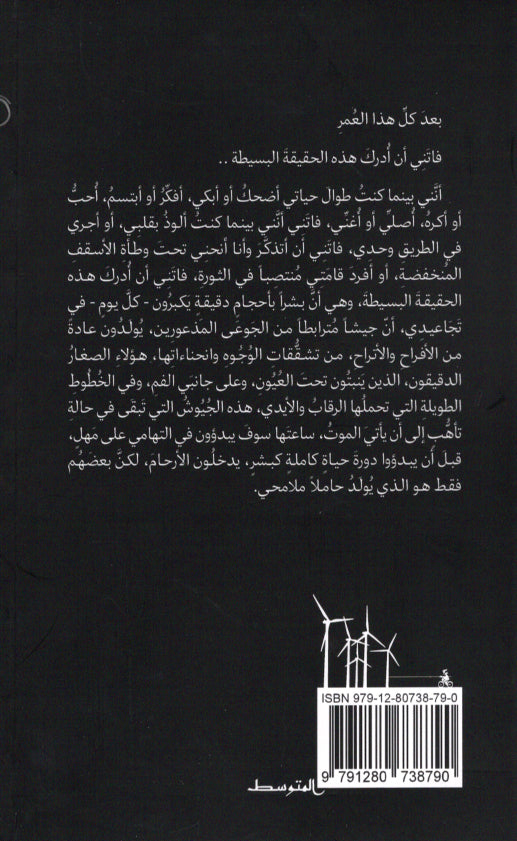 بعدَ كلِّ هذا العُمرِ
فاتَنِي أن أُدركَ هذه الحقيقةَ البسيطة ..
أنَّني بينما كنتُ طوالَ حياتي أضحكُ أو أبكي، أفكِّرُ أو أبتسمُ، أُحبُّ
أو أكرهُ، أُصلِّي أو أُغنِّي، فاتَني أنَّنِي بينما كنتُ ألوذُ بقلبِي، أو أجري
في الطريقِ وحدي، فاتَنِي أن أتذكَّرَ وأنا أنحني تحتَ وطأةِ الأسقفِ
المُنخفضةِ، أو أفردَ قامَتي مُنتصِباً في الثورة، فاتَنِي أن أُدركَ هذه
الحقيقةَ البسيطةَ، وهي أنَّ بشراً بأحجامٍ دقيقةٍ يكبرُون - كلَّ يومٍ - في
تجَاعيدي، أنّ جيشاً مُترابطاً من الجَوعَى المَذعورين، يُولدُون عادةً
من الأفراحِ والأتراحِ، من تشقُّقات الوُجُوهِ وانحناءاتِها، هؤلاءِ الصغارُ
الدقيقون، الذين يَنبتُون تحتَ العُيُونِ، وعلى جانبَي الفمِ، وفي الخُطُوطِ
الطويلةِ التي تحملُها الرقابُ والأيدي، هذه الجُيُوشُ التي تَبقَى في حالةِ
تأهُّب إلى أن يأتيَ الموتُ، ساعتَها سوفَ يبدؤون في التهامي على مَهلٍ،
قبلَ أن يبدؤوا دورةَ حياةٍ كاملةٍ كبشرٍ، يدخلُون الأرحامَ، لكنَّ بعضَهُم
فقط هو الذي يُولَدُ حاملاً ملامحي.
ISBN 979-12-80738-79-0
9 791280 738790
المتوسط